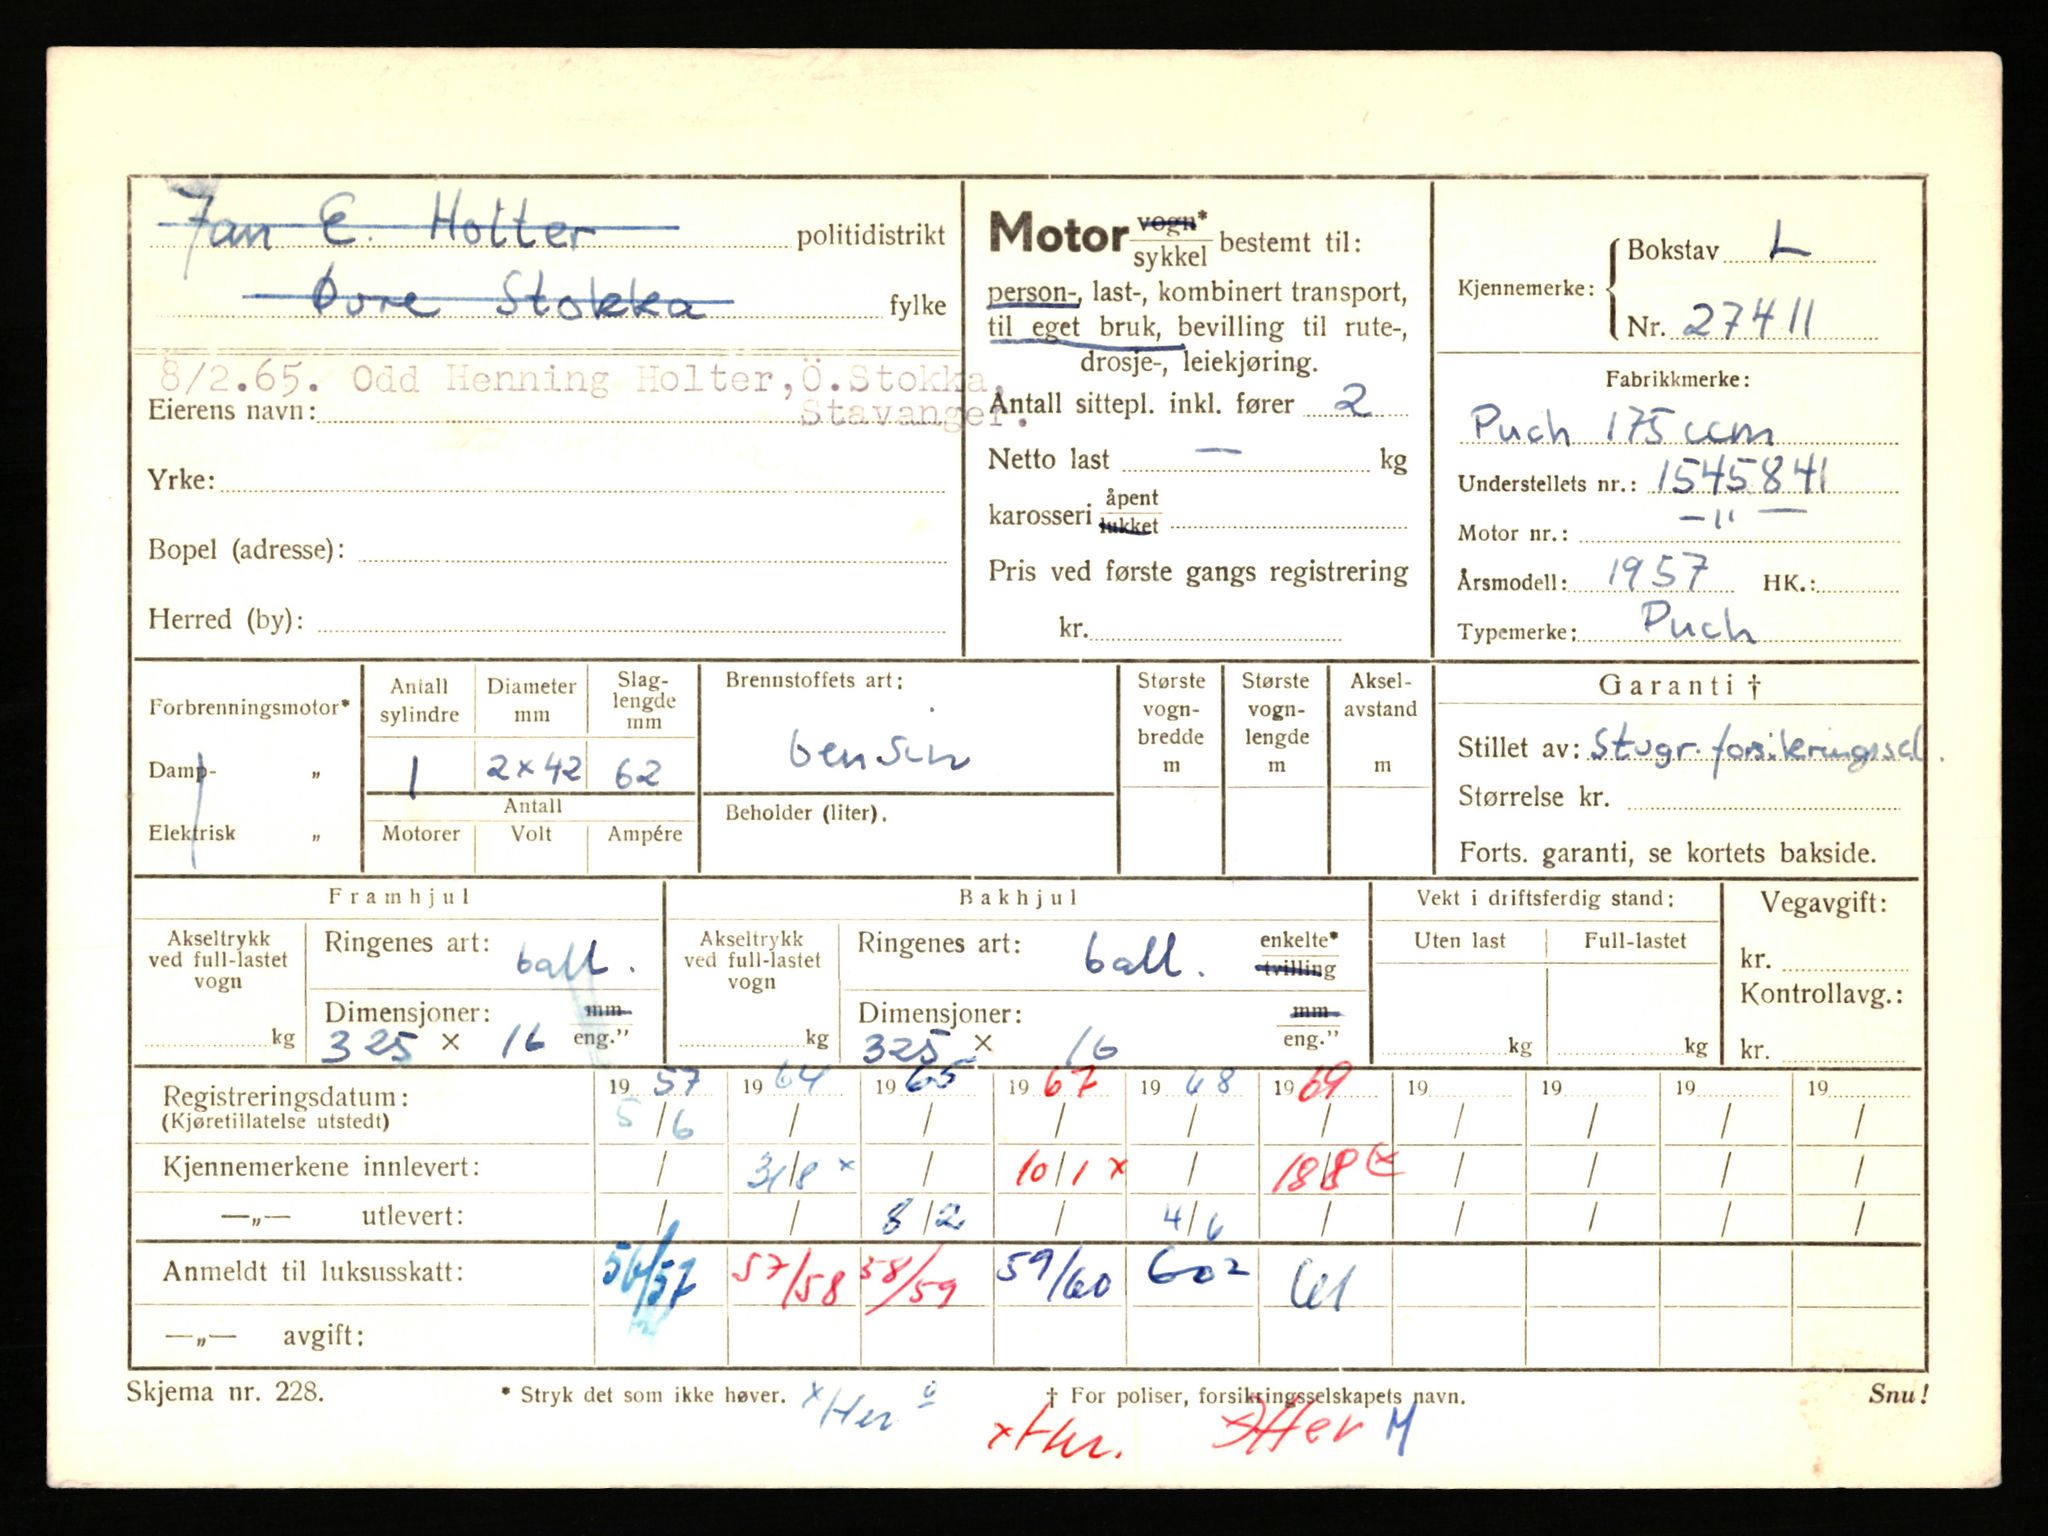 Jan E. Holter politidistrikt
Øvre Stokka fylke
8/2.65. Odd Henning Holter, Ö.Stokka,
Eierens navn: Stavanger.
Yrke:
Bopel (adresse):
Herred (by):
Motor vogn* sykkel bestemt til:
person-, last-, kombinert transport,
til eget bruk, bevilling til rute-,
drosje-, leiekjøring.
Antall sittepl. inkl. fører 2
Netto last — kg
karosseri åpent lukket
Pris ved første gangs registrering
kr.
Kjennemerke: Bokstav L
Nr. 27411
Fabrikkmerke:
Puch 175 ccm
Understellets nr.: 1545841
Motor nr.: —"—
Årsmodell: 1957 HK.:
Typemerke: Puch
Forbrenningsmotor*
Damp- „
Elektrisk „
Antall sylindre Diameter mm Slaglengde mm
1 2×42 62
Antall
Motorer Volt Ampére
Brennstoffets art:
bensin
Beholder (liter).
Største vognbredde m
Største vognlengde m
Akselavstand m
Garanti †
Stillet av: Stvgr. forsikringssel.
Størrelse kr.
Forts. garanti, se kortets bakside.
Framhjul
Akseltrykk ved full-lastet vogn kg
Ringenes art: ball.
Dimensjoner: mm eng."
325 × 16
Bakhjul
Akseltrykk ved full-lastet vogn kg
Ringenes art: ball. enkelte* tvilling
Dimensjoner: mm eng."
325 × 16
Vekt i driftsferdig stand:
Uten last Full-lastet
kg kg
Vegavgift:
kr.
Kontrollavg.:
kr.
Registreringsdatum: 1957 1964 1965 1967 1968 1969 19 19 19 19
(Kjøretillatelse utstedt) 5/6 / / / / / / / / /
Kjennemerkene innlevert: / 31/8 x / 10/1 x / 18/8 x / / / /
—„— utlevert: / / 8/2 / 4/6 / / / / /
Anmeldt til luksusskatt: 56/57 57/58 58/59 59/60 602 61
—„— avgift:
Skjema nr. 228. * Stryk det som ikke høver. † For poliser, forsikringsselskapets navn. Snu!
x Her x Her. x Her M